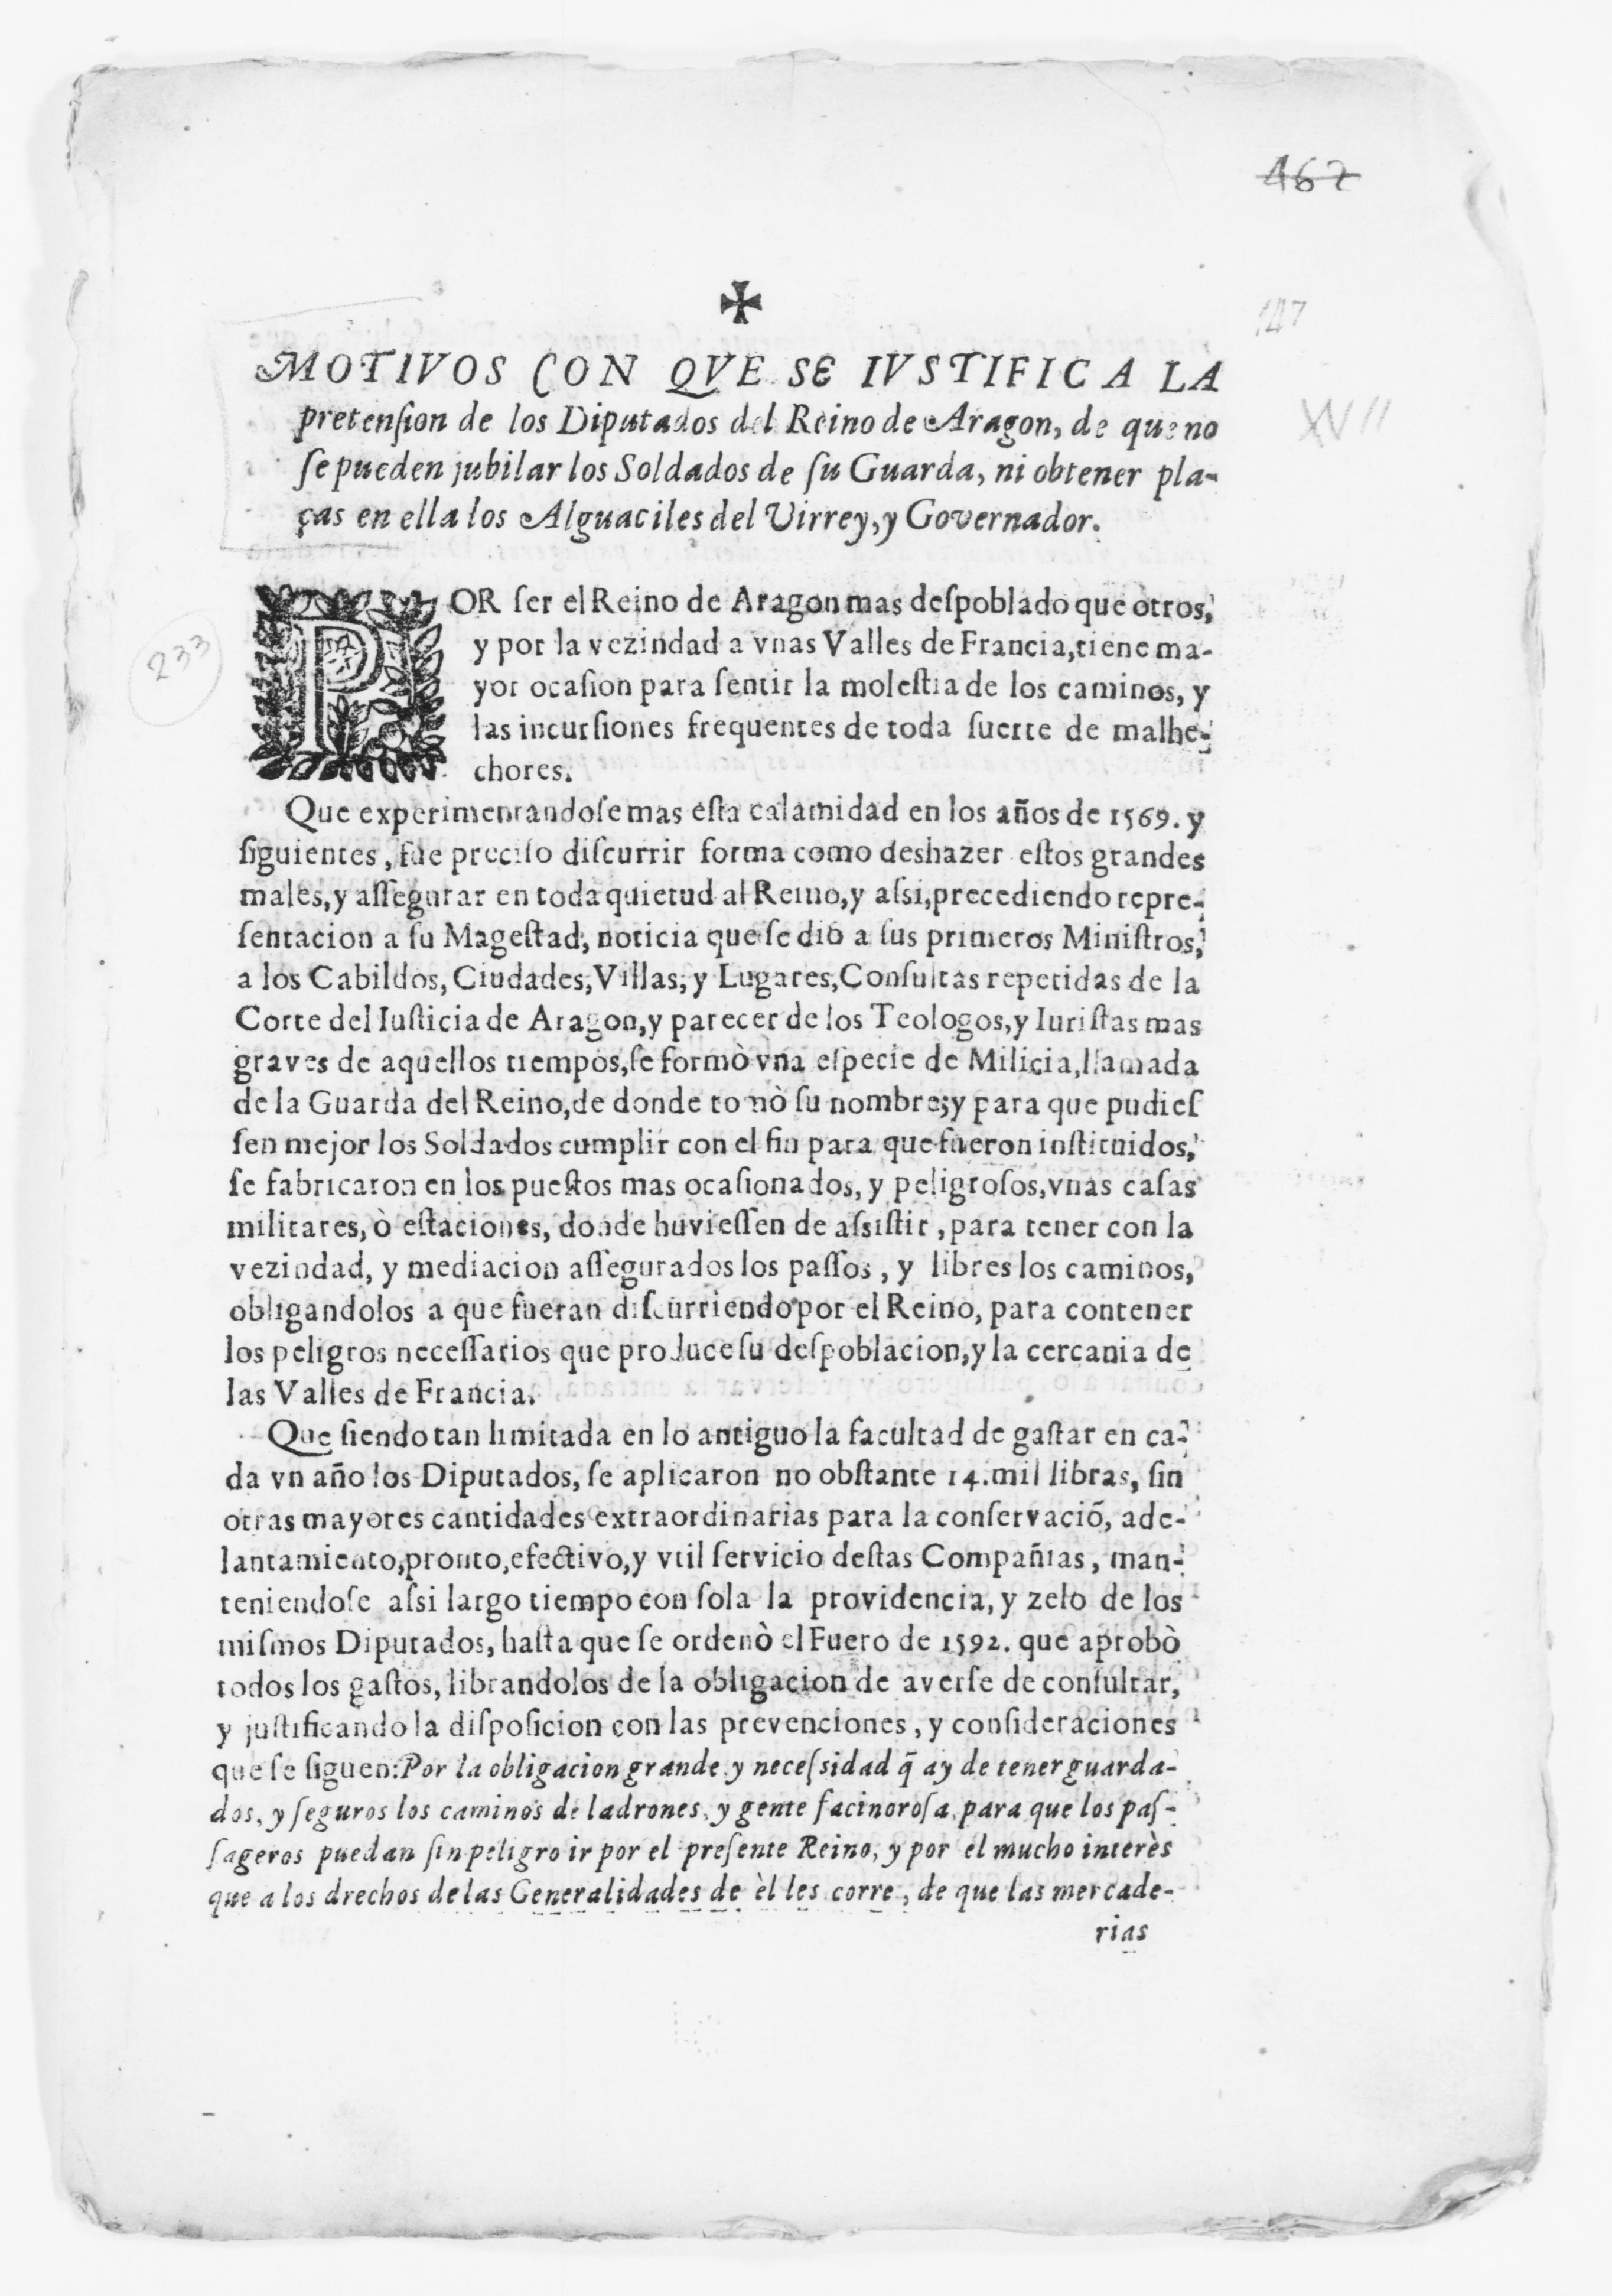 467
✠
147
MOTIVOS CON QVE SE IVSTIFICA LA
pretenſion de los Diputados del Reino de Aragon, de que no
XVII
ſe pueden jubilar los Soldados de ſu Guarda, ni obtener pla-
ças en ella los Alguaciles del Virrey, y Governador.
POR ſer el Reino de Aragon mas deſpoblado que otros,
y por la vezindad a vnas Valles de Francia, tiene ma-
233
yor ocaſion para ſentir la moleſtia de los caminos, y
las incurſiones frequentes de toda ſuerte de malhe-
chores.
Que experimentandoſe mas eſta calamidad en los años de 1569. y
ſiguientes, fue preciſo diſcurrir forma como deshazer eſtos grandes
males, y aſſegurar en toda quietud al Reino, y aſsi, precediendo repre-
ſentacion a ſu Mageſtad, noticia que ſe diò a ſus primeros Miniſtros,
a los Cabildos, Ciudades, Villas, y Lugares, Conſultas repetidas de la
Corte del Iuſticia de Aragon, y parecer de los Teologos, y Iuriſtas mas
graves de aquellos tiempos, ſe formò vna eſpecie de Milicia, llamada
de la Guarda del Reino, de donde tomò ſu nombre; y para que pudieſ
ſen mejor los Soldados cumplir con el fin para que fueron inſtituidos,
ſe fabricaron en los pueſtos mas ocaſionados, y peligroſos, vnas caſas
militares, ò eſtaciones, donde huvieſſen de aſsiſtir, para tener con la
vezindad, y mediacion aſſegurados los paſſos, y libres los caminos,
obligandolos a que fueran diſcurriendo por el Reino, para contener
los peligros neceſſarios que produce ſu deſpoblacion, y la cercania de
las Valles de Francia.
Que ſiendo tan limitada en lo antiguo la facultad de gaſtar en ca-
da vn año los Diputados, ſe aplicaron no obſtante 14. mil libras, ſin
otras mayores cantidades extraordinarias para la conſervaciõ, ade-
lantamiento, pronto, efectivo, y vtil ſervicio deſtas Compañias, man-
teniendoſe aſsi largo tiempo con ſola la providencia, y zelo de los
miſmos Diputados, haſta que ſe ordenò el Fuero de 1592. que aprobò
todos los gaſtos, librandolos de la obligacion de averſe de conſultar,
y juſtificando la diſpoſicion con las prevenciones, y conſideraciones
que ſe ſiguen: Por la obligacion grande y neceſsidad q̃ ay de tener guarda-
dos, y ſeguros los caminos de ladrones, y gente facinoroſa, para que los paſ-
ſageros puedan ſin peligro ir por el preſente Reino, y por el mucho interès
que a los drechos de las Generalidades de èl les corre, de que las mercade-
rias